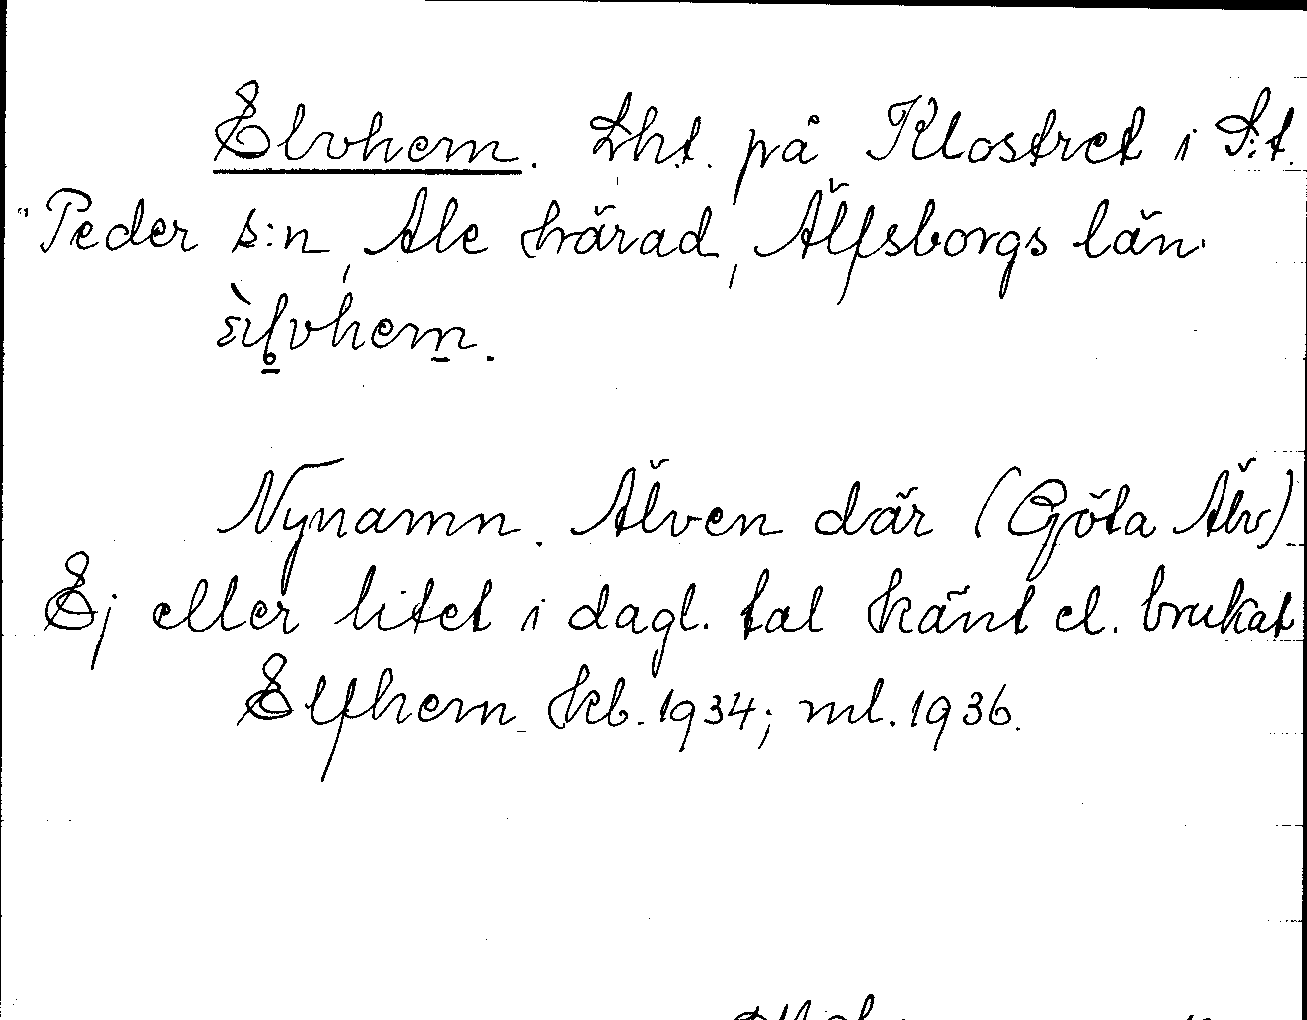 Elvhem. Lht. på Klostret i S:t.
Peder s:n, Ale härad, Älfsborgs län.
Nynamn. Älven där (Göta Älv)
Ej eller litet i dagl. tal känt el. brukat
Elfhem kb. 1934; ml. 1936.